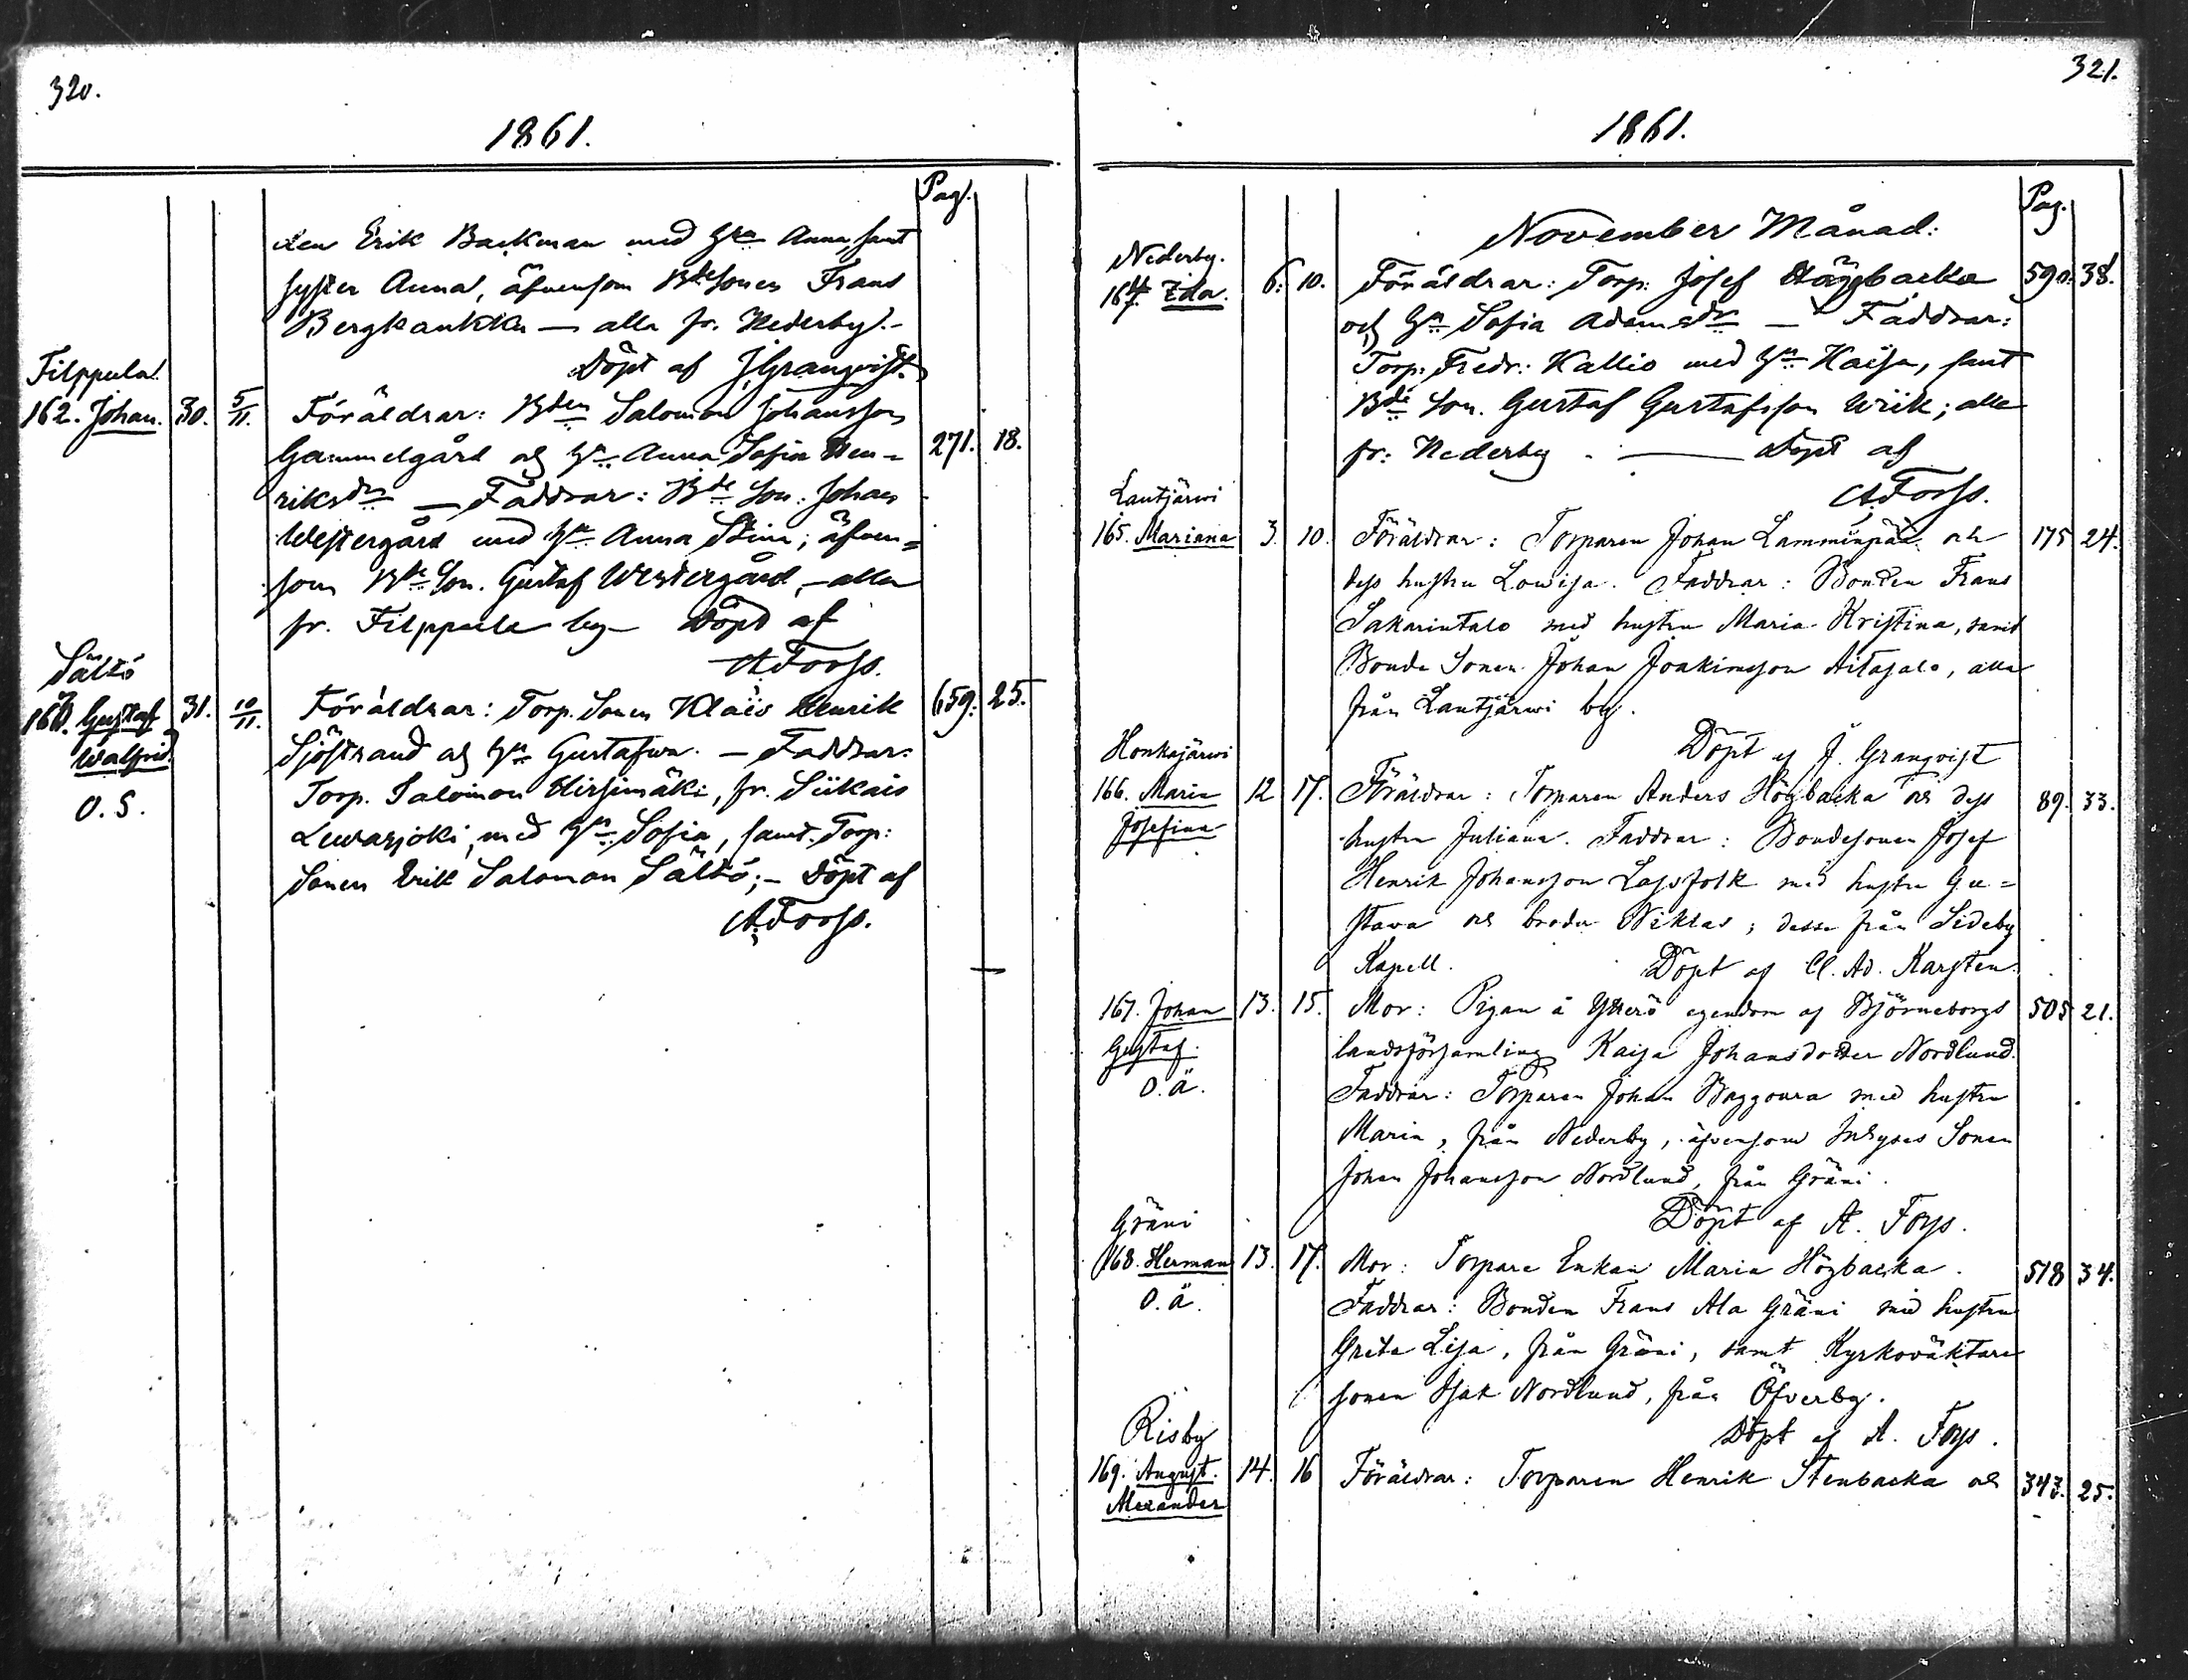 320.
1861.
Pag.
den Erik Backman med h:n Anna, samt
syster Anna, äfvensom Bdesonen Frans
Bergkaukka — alla fr. Nederby.-
Döpt af J. Granqvist.
Filppula
162. Johan. 30. 5/11. Föräldrar: Bden Salomon Johansson 271. 18.
Gammelgård och h:n Anna Sofia Hen-
riksdr — Faddrar: Bde Son. Johan
Westergård med h:n Anna Stina; äfven=
som Bde Son. Gustaf Westergård, - alla
fr. Filppula by - Döpt af
A. Forss.
Sältö
163. Gustaf 31. 10/11. Föräldrar: Torp. Sonen Klas Henrik 659. 25.
Walfrid Sjöstrand och h:n Gustafva. — Faddrar:
O. S. Torp. Salomon Hirsimäki, fr. Siikais
Leväsjoki, med h:n Sofia, samt Torp:
Sonen Erik Salomon Sältö; - Döpt af
A. Forss.
321.
1861.
Pag.
November Månad:
Nederby.
164. Ida. 6. 10. Föräldrar: Torp: Josef Högbacka 590. 38.
och h:n Sofia Adamsdr — Faddrar:
Torp. Fredr: Kallio med h:n Kaisa, samt
Bde Son. Gustaf Gustafsson Wrik; alla
fr: Nederby. — Döpt af
A. Forss.
Lautjärwi
165. Mariana 3. 10. Föräldrar: Torparen Johan Lamminpää och 175 24.
dess hustru Lowisa. Faddrar: Bonden Frans
Sakarintalo med hustru Maria Kristina, samt
Bonde Sonen Johan Joakimsson Aitasalo, alla
från Lautjärwi by.
Döpt af J. Granqvist
Honkajärwi
166. Maria 12 17. Föräldrar: Torparen Anders Högbacka och dess 89. 33.
Josefina hustru Juliana. Faddrar: Bondesonen Josef
Henrik Johansson Lassfolk med hustru Gu=
stava och broder Niklas; desse från Sideby
Kapell. Döpt af Cl. Ad. Karsten.
167. Johan 13. 15. Mor: Pigan å Ytterö egendom af Björneborgs 505 21.
Gustaf. landsförsamling Kaisa Johansdotter Nordlund.
O. ä. Faddrar: Torparen Johan Haggoura med hustru
Maria, från Nederby, äfvensom Inhyses Sonen
Johan Johansson Nordlund, från Gräni.
Döpt af A. Forss.
Gräni
168. Herman 13. 17. Mor: Torpare Enkan Maria Högbacka. 518 34.
O. ä. Faddrar: Bonden Frans Ala Gräni med hustru
Greta Lisa, från Gräni, samt Kyrkoväktare
sonen Isak Nordlund, från Öfverby.
Döpt af A. Forss.
Risby
169. August. 14. 16 Föräldrar: Torparen Henrik Stenbacka och 343. 25.
Alexander